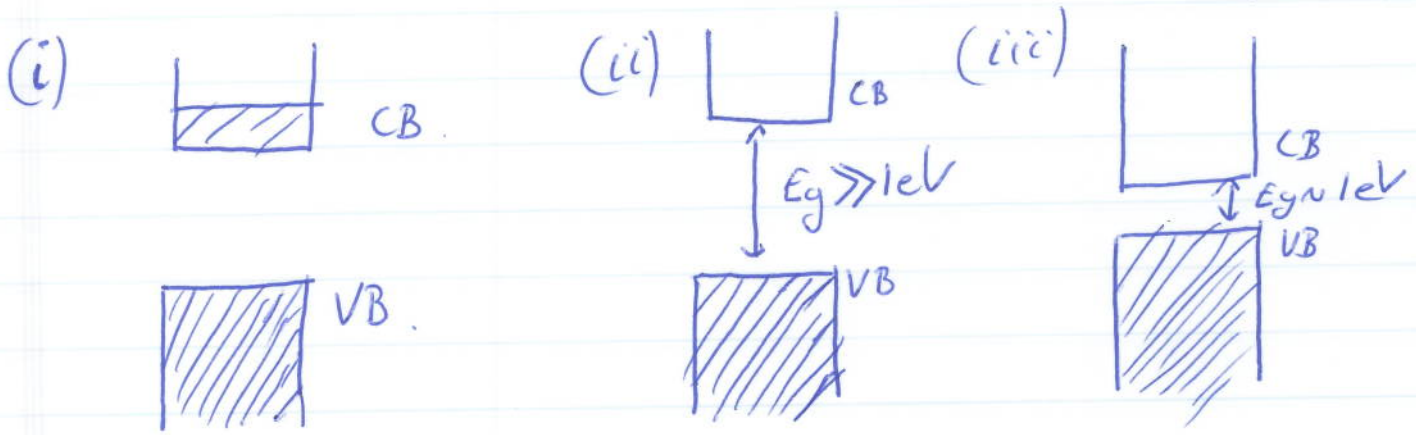 (i)
CB.
VB.
(ii)
CB
Eg≫1eV
VB
(iii)
CB
Eg~1eV
VB